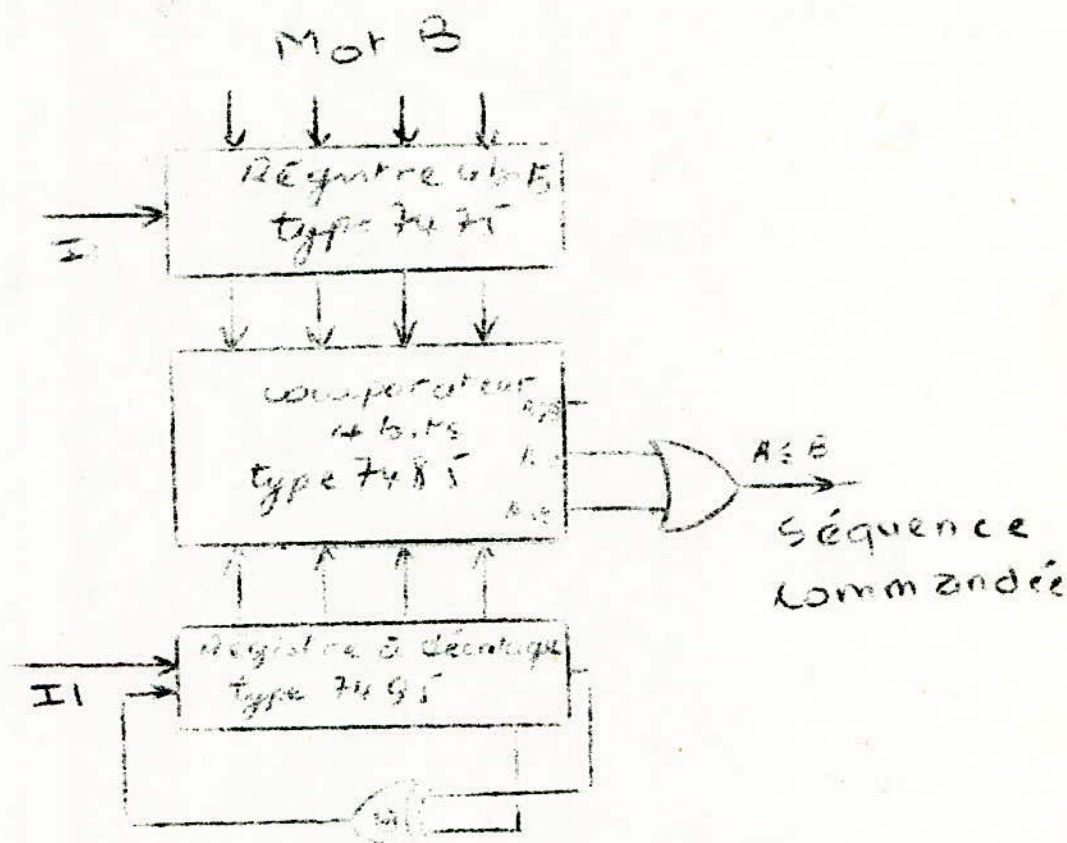 Mot B
Régistre 4bits
type 7475
I
comparateur
4 bits
type 7485
A>B
A ≤ B
Séquence
commandée
Régistre à décalage
type 7495
I1